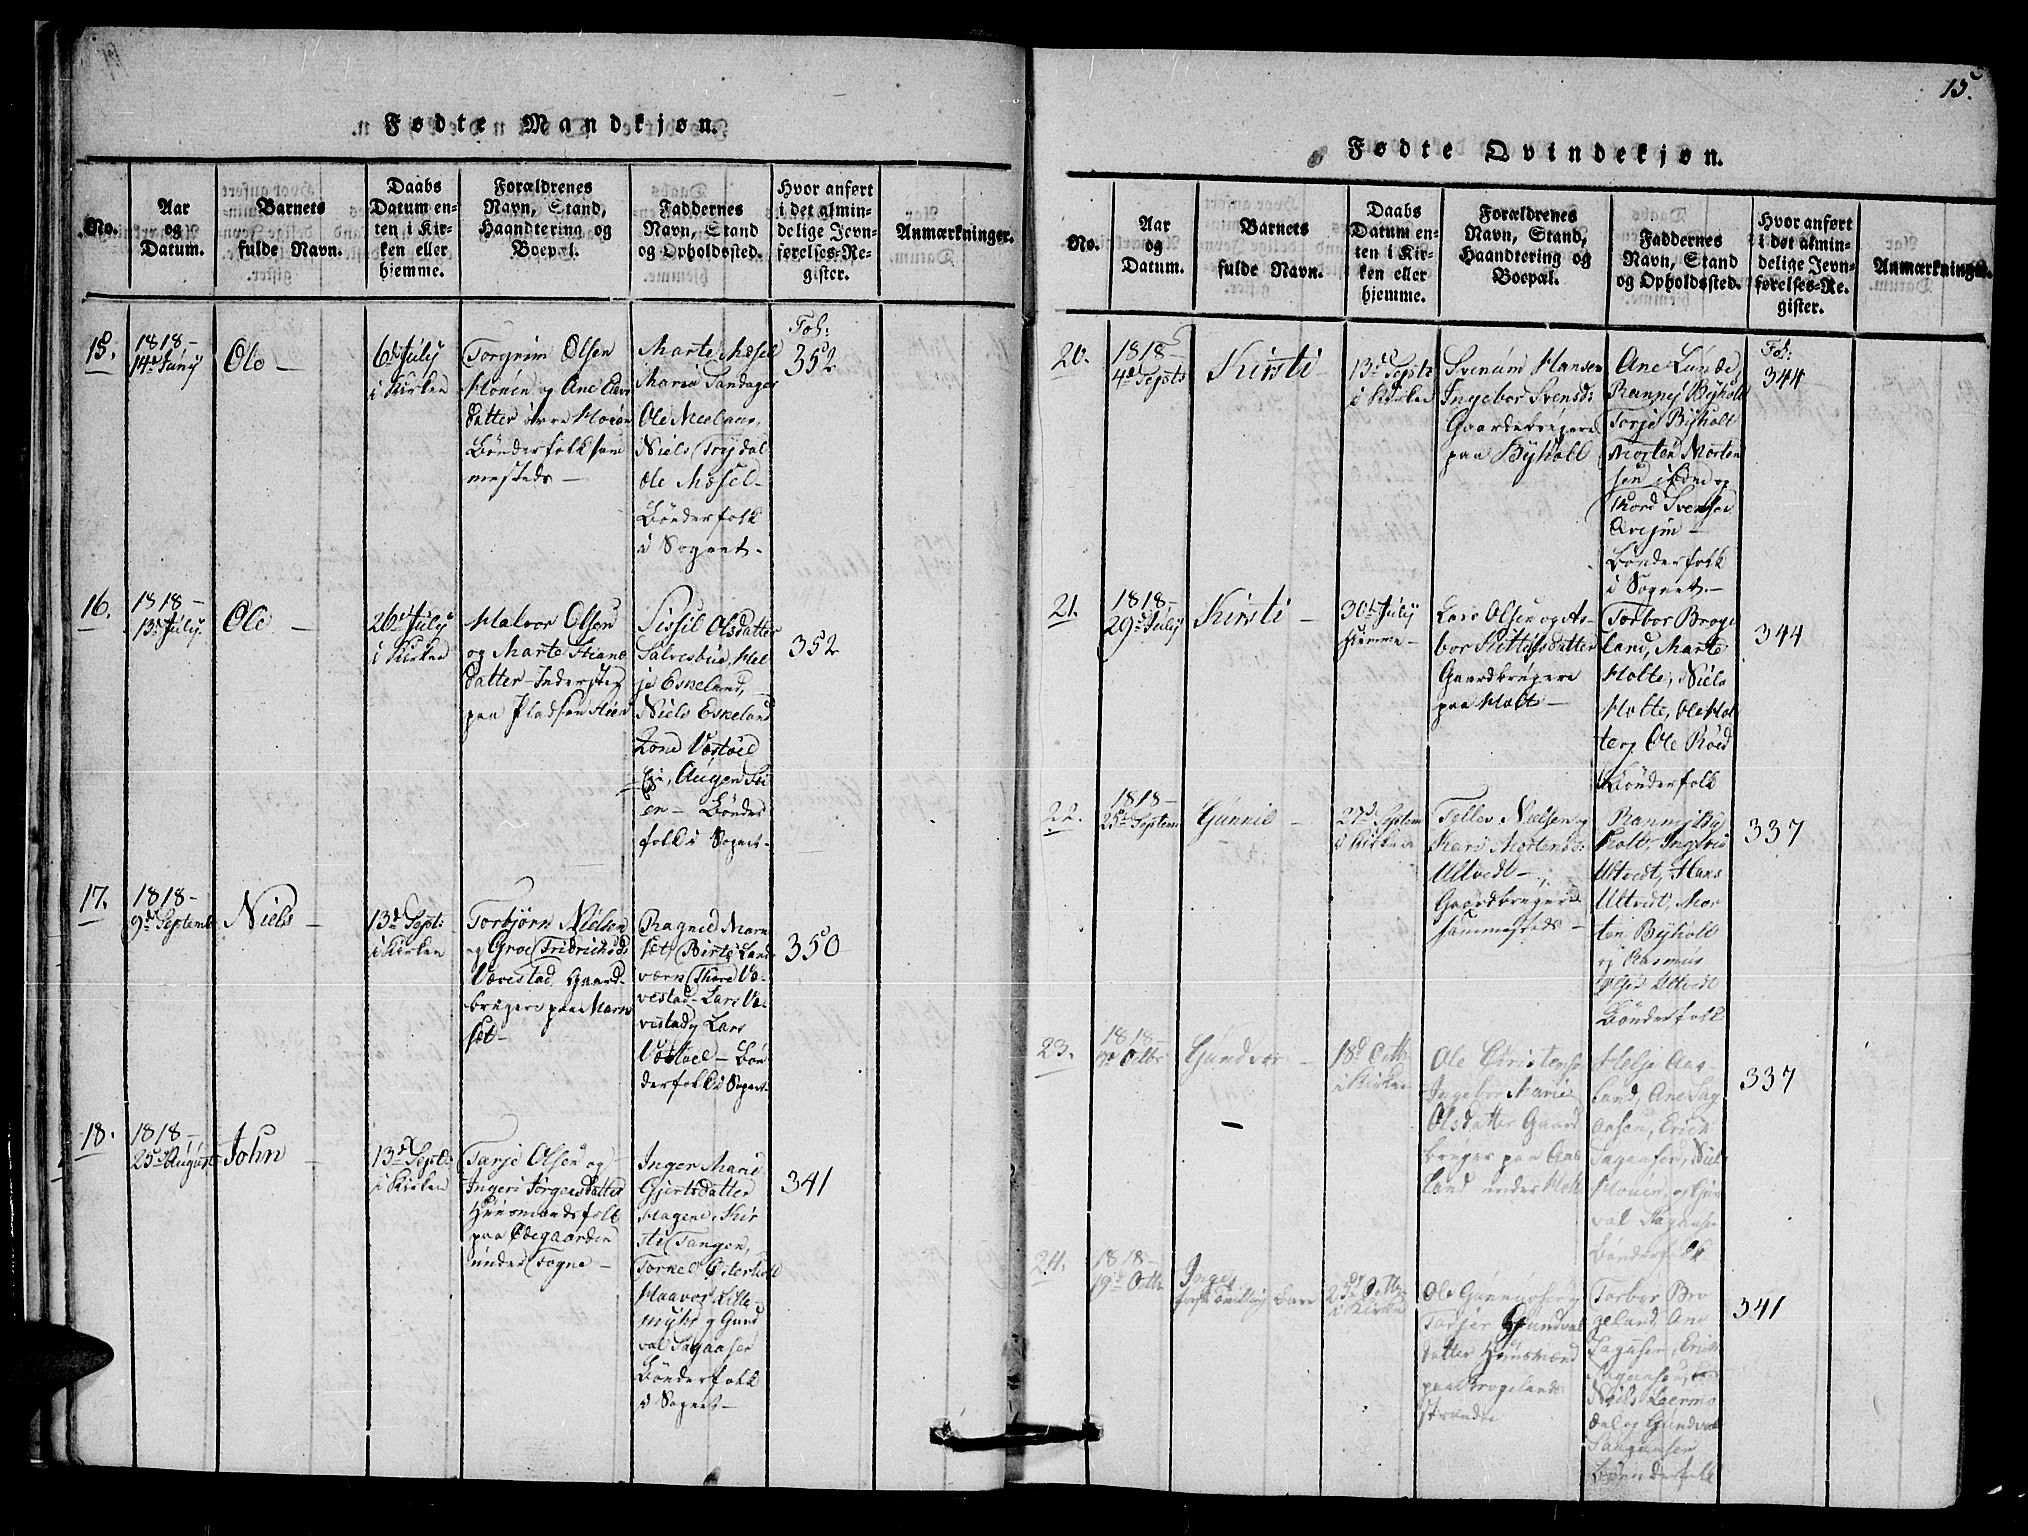 Fødte Mandkjøn.
No.
Aar
og
Datum.
Barnets
fulde Navn.
Daabs
Datum en-
ten i Kir-
ken eller
hjemme.
Forældrenes
Navn, Stand,
Haandtering og
Boepæl.
Faddernes
Navn, Stand
og Opholdssted.
Hvor anført
i det almin-
delige Jevn-
førelses-Re-
gister.
Anmærkninger.
15.
1818-
14de Juny
Ole -
6te July
i Kirken
Torgrim Olsen
Monen og Ane
datter
Bønderfolk sam
mesteds -
Marte Mæsel
Maria Sandager
Ole
Niels Trydal
Ole Mæsel-
Bønderfolk
i Sognet.
Fol:
352
16.
1818-
13de July.
Ole -
26de July
i Kirken
Halvor Olsen
og Marte
datter - Inderster
paa Pladsen
Sissil Olsdatter
Salvesbue, Hel-
je Eskeland,
Niels Eskeland
Vestøl
en - Bønder
folk i Sognet.
352
17.
1818-
9de Septembr
Niels -
13de Sept:
i Kirken
Torbjørn Nielsen
og Groe Fridrichsd:
Vævestad, Gaard-
brugere paa
Ragnild
Birte Land
værn Thore Væ-
vestad - Lars Væ-
vestad og Lars
Bøn
derfolk i Sognet.
350
18.
1818-
25de August
John -
13de Sept:
i Kirken
Tarje Olsen og
Ingeri Jørgensdatter
Huusmandsfolk
paa Ødegaarden
under Togne -
Inger Marie
Gjertsdatter
Hagene, Kir
sti Tangen,
Torkel Østerholt
Haavor Lille-
myhr og Gund
val Sagaasen
Bønderfolk
i Sognet -
341
15.
Fødte Qvindekjøn.
No.
Aar
og
Datum.
Barnets
fulde Navn.
Daabs
Datum en-
ten i Kir-
ken eller
hjemme.
Forældrenes
Navn, Stand,
Haandtering og
Boepæl.
Faddernes
Navn, Stand
og Opholdssted.
Hvor anført
i det almin-
delige Jevn-
førelses-Re-
gister.
Anmærkninger.
20.
1818-
4de Septs
Kirsti
13de Sept:
i Kirken
Svenum Hansen
Ingebor Svensd:
Gaardebrugere
paa Byholt
Ane Lunde,
Ranney Byholt
Torje Byholt
Morten Morten
sen og
Thord Svensen
Bønderfolk
i Sognet. -
Fol:
344
21.
1818-
29de July
Kirsti -
30te July
hjemme -
Lars Olsen og As-
bor
Gaardbrugere
paa Holt -
Torbor Broge
land, Marte
Holte, Niels
Holte, Ole Hol
te og Ole Røed
Bønderfolk
344
22.
1818-
25de Septem
Gunnil -
27de Septem
i Kirken
Tellev Nielsen og
Kari Mortensd:
Ultvedt -
Gaardbrugere
sammesteds -
Ranney By
holt,
Ultvedt, Hans
Ultvedt, Mor
ten Byholt
og Rasmus
Ultvedt
Bønderfolk
337
23.
1818-
Octbr
Gundvor -
18de Octb
i Kirken
Ole Christens:
Ingebor Marie
Olsdatter Gaard
bruger paa Aas
land under Holt
Helje Aas-
land, Ane Sag
aasen, Erich
Sagaasen, Niels
Monen, og Gun
val Sagaasen
Bønderfolk
337
24.
1818-
19de Octb
Inger
første Tvilling
25de Octb
i Kirken
Ole Gunnarsen og
Gundval
datter Huusmænd
paa Brogelands
strande
Torbor Bro
geland, Ane
Sagaasen, Erich
Sagaasen,
Niels
dal og Gundval
Sagaasen
Bønderfolk
341